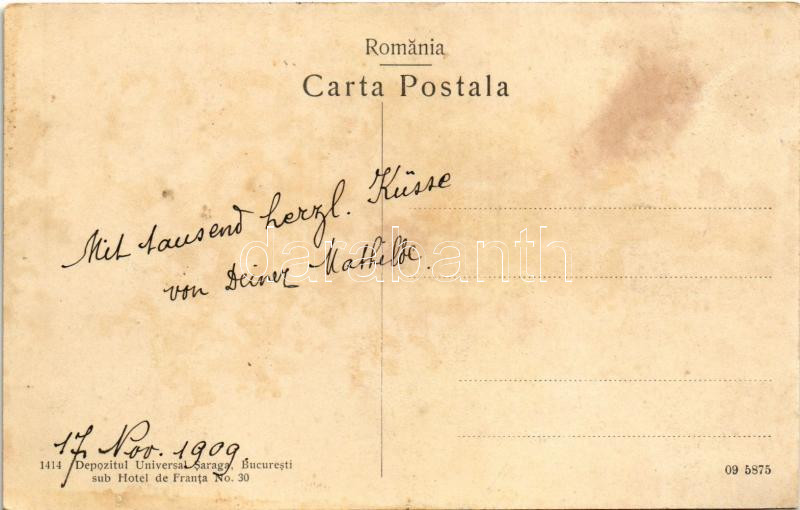 România
Carta Postala
Mit tausend herzl. Küsse
von Deiner Mathilde.
darabanth
17. Nov. 1909.
1414 Depozitul Universal Șaraga, București
sub Hotel de Franța No. 30
09 5875